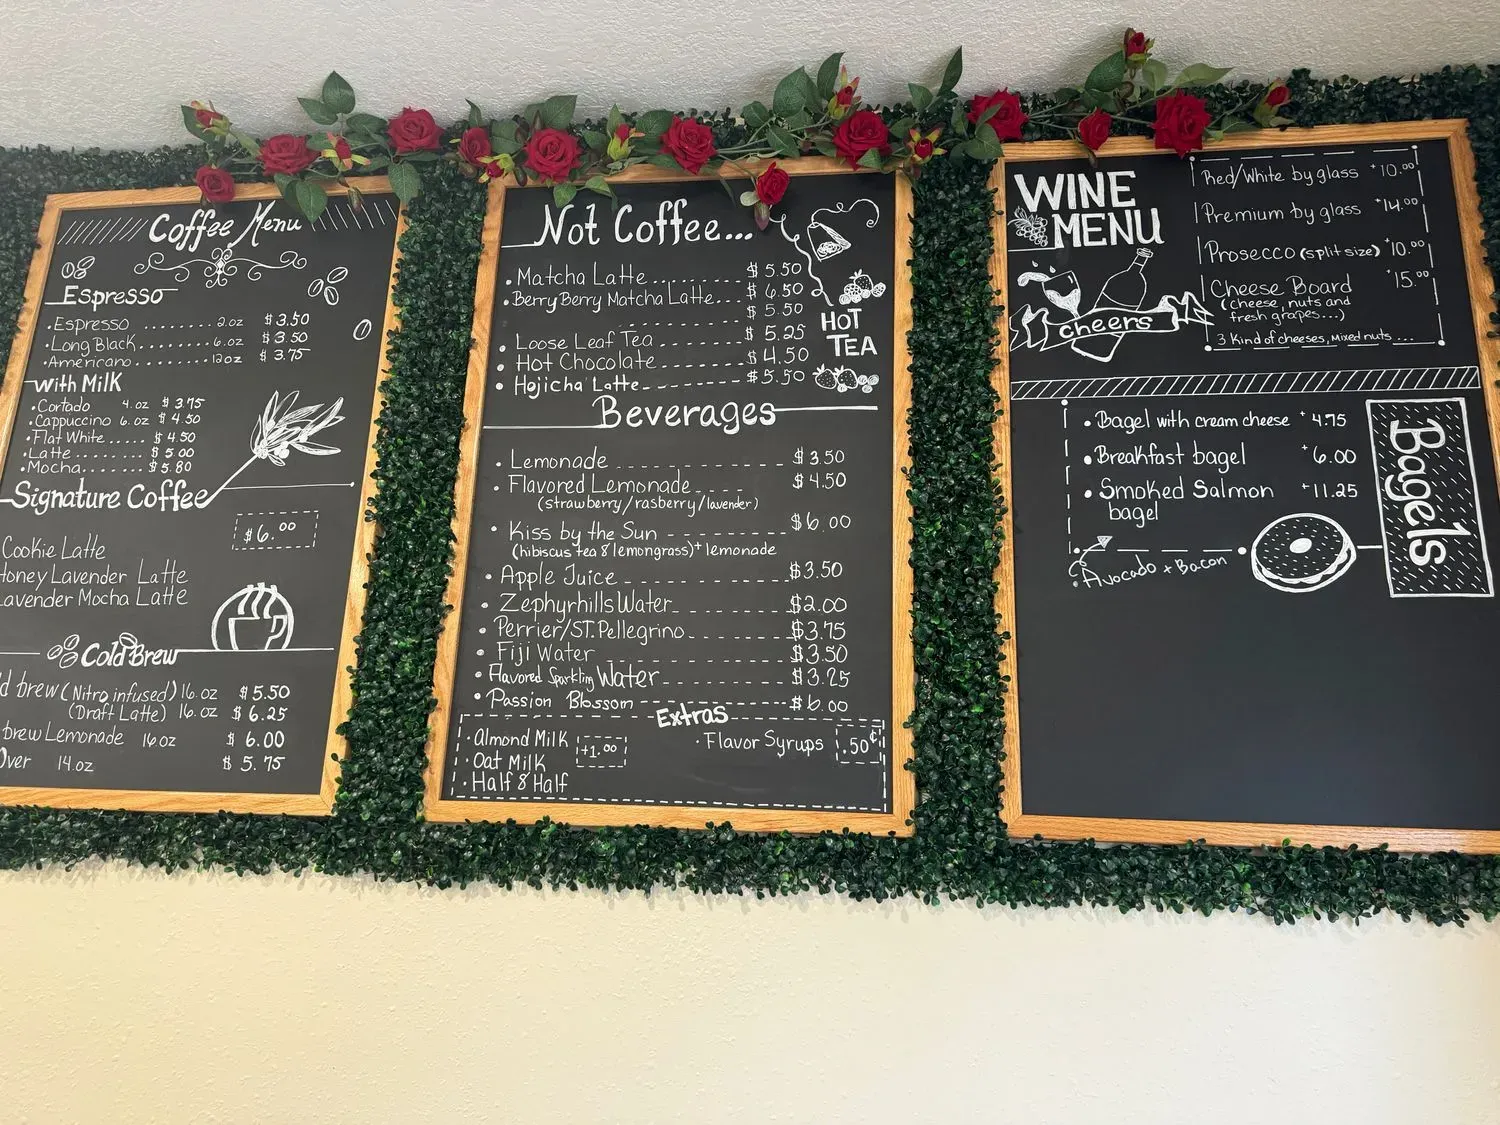 Coffee Menu
Espresso
• Espresso ........ 2oz $3.50
• Long Black ....... 6.oz $3.50
• Americano ....... 12oz $3.75
with Milk
• Cortado 4.oz $3.75
• Cappuccino 6.oz $4.50
• Flat White ..... $4.50
• Latte ........ $5.00
• Mocha ....... $5.80
Signature Coffee
$6.00
Cookie Latte
Honey Lavender Latte
Lavender Mocha Latte
Cold Brew
d brew (Nitro infused) 16.oz $5.50
(Draft Latte) 16.oz $6.25
brew Lemonade 16oz $6.00
Over 14.oz $5.75
Not Coffee...
• Matcha Latte ........ $5.50
• Berry Berry Matcha Latte... $6.50
$5.50
• Loose Leaf Tea $5.25
• Hot Chocolate $4.50
• Hojicha Latte $5.50
HOT
TEA
Beverages
• Lemonade $3.50
• Flavored Lemonade $4.50
(strawberry/rasberry/lavender)
• Kiss by the Sun $6.00
(hibiscus tea & lemongrass)+ lemonade
• Apple Juice $3.50
• Zephyrhills Water $2.00
• Perrier/ST. Pellegrino $3.75
• Fiji Water $3.50
• Flavored Sparkling Water $3.25
• Passion Blossom $6.00
Extras
• Almond Milk
Oat Milk +1.00
• Half & Half
• Flavor Syrups .50¢
WINE
MENU
cheers
Red/White by glass +10.00
Premium by glass +14.00
Prosecco (split size) +10.00
Cheese Board +15.00
(cheese, nuts and
fresh grapes...)
3 Kind of cheeses, Mixed nuts ...
• Bagel with cream cheese + 4.75
• Breakfast bagel +6.00
• Smoked Salmon +11.25
bagel
• Avocado + Bacon
Bagels